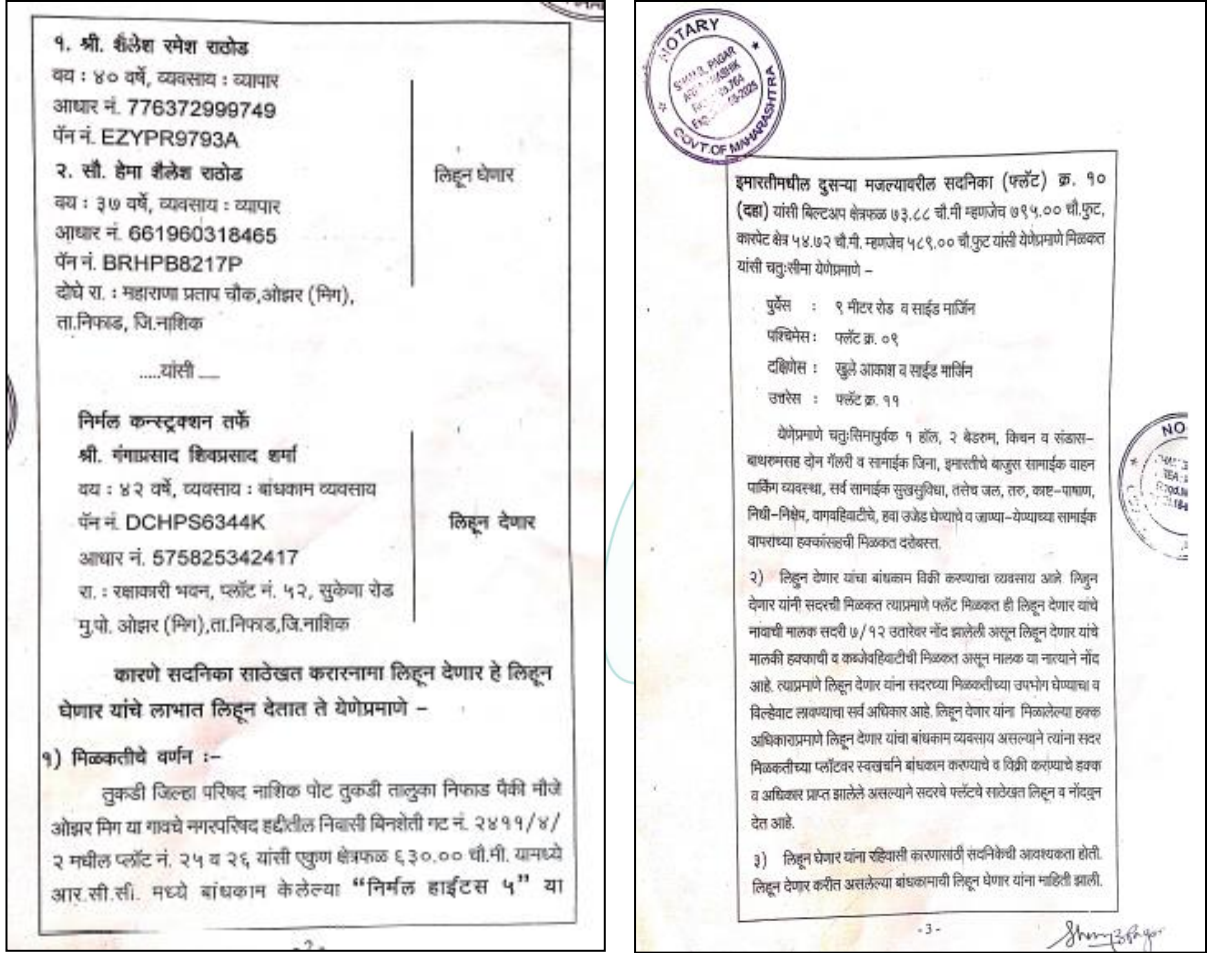 १. श्री. शैलेश रमेश राठोड
वय : ४० वर्षे, व्यवसाय : व्यापार
आधार नं. 776372999749
पॅन नं. EZYPR9793A
२. सौ. हेमा शैलेश राठोड
वय : ३७ वर्षे, व्यवसाय : व्यापार
आधार नं. 661960318465
पॅन नं. BRHPB8217P
दोघे रा. : महाराणा प्रताप चौक,ओझर (मिग),
ता.निफाड, जि.नाशिक
लिहून घेणार
.....यांसी .....
निर्मल कन्स्ट्रक्शन तर्फे
श्री. गंगाप्रसाद शिवप्रसाद शर्मा
वय : ४२ वर्षे, व्यवसाय : बांधकाम व्यवसाय
पॅन नं. DCHPS6344K
आधार नं. 575825342417
रा. : रक्षाकारी भवन, प्लॉट नं. ५२, सुकेणा रोड
मु.पो. ओझर (मिग),ता.निफाड,जि.नाशिक
लिहून देणार
कारणे सदनिका साठेखत करारनामा लिहून देणार हे लिहून
घेणार यांचे लाभात लिहून देतात ते येणेप्रमाणे –
१) मिळकतीचे वर्णन :–
तुकडी जिल्हा परिषद नाशिक पोट तुकडी तालुका निफाड पैकी मौजे
ओझर मिग या गावचे नगरपरिषद हद्दीतील निवासी बिनशेती गट नं. २४११/४/
२ मधील प्लॉट नं. २५ व २६ यांसी एकुण क्षेत्रफळ ६३०.०० चौ.मी. यामध्ये
आर.सी.सी. मध्ये बांधकाम केलेल्या “निर्मल हाईटस ५” या
- 2 -
NOTARY
GOVT.OF MAHARASHTRA
इमारतीमधील दुसऱ्या मजल्यावरील सदनिका (फ्लॅट) क्र. १०
(दहा) यांसी बिल्टअप क्षेत्रफळ ७३.८८ चौ.मी म्हणजेच ७९५.०० चौ.फुट,
कारपेट क्षेत्र ५४.७२ चौ.मी. म्हणजेच ५८९.०० चौ.फुट यांसी येणेप्रमाणे मिळकत
यांसी चतुःसीमा येणेप्रमाणे –
पुर्वेस : ९ मीटर रोड व साईड मार्जिन
पश्चिमेस : फ्लॅट क्र. ०९
दक्षिणेस : खुले आकाश व साईड मार्जिन
उत्तरेस : फ्लॅट क्र. ११
येणेप्रमाणे चतुःसिमापुर्वक १ हॉल, २ बेडरुम, किचन व संडास–
बाथरुमसह दोन गॅलरी व सामाईक जिना, इमारतीचे बाजुस सामाईक वाहन
पार्किंग व्यवस्था, सर्व सामाईक सुखसुविधा, तसेच जल, तरु, काष्ट-पाषाण,
निधी–निक्षेप, वागवहिवाटीचे, हवा उजेड घेण्याचे व जाण्या–येण्याच्या सामाईक
वापरांच्या हक्कांसहची मिळकत दरोबस्त.
२) लिहुन देणार यांचा बांधकाम विक्री करण्याचा व्यवसाय आहे. लिहुन
देणार यांनी सदरची मिळकत त्याप्रमाणे फ्लॅट मिळकत ही लिहुन देणार यांचे
नावाची मालक सदरी ७/१२ उतारेवर नोंद झालेली असून लिहुन देणार यांचे
मालकी हक्काची व कब्जेवहिवाटीची मिळकत असून मालक या नात्याने नोंद
आहे. त्याप्रमाणे लिहुन देणार यांना सदरच्या मिळकतीच्या उपभोग घेण्याचा व
विल्हेवाट लावण्याचा सर्व अधिकार आहे. लिहुन देणार यांना मिळालेल्या हक्क
अधिकाराप्रमाणे लिहुन देणार यांचा बांधकाम व्यवसाय असल्याने त्यांना सदर
मिळकतीच्या प्लॉटवर स्वखर्चाने बांधकाम करण्याचे व विक्री करण्याचे हक्क
व अधिकार प्राप्त झालेले असल्याने सदरचे फ्लॅटचे साठेखत लिहुन व नोंदवुन
देत आहे.
३) लिहुन घेणार यांना रहिवासी कारणासाठी सदनिकेची आवश्यकता होती.
लिहुन देणार करीत असलेल्या बांधकामाची लिहुन घेणार यांना माहिती झाली.
- 3 -